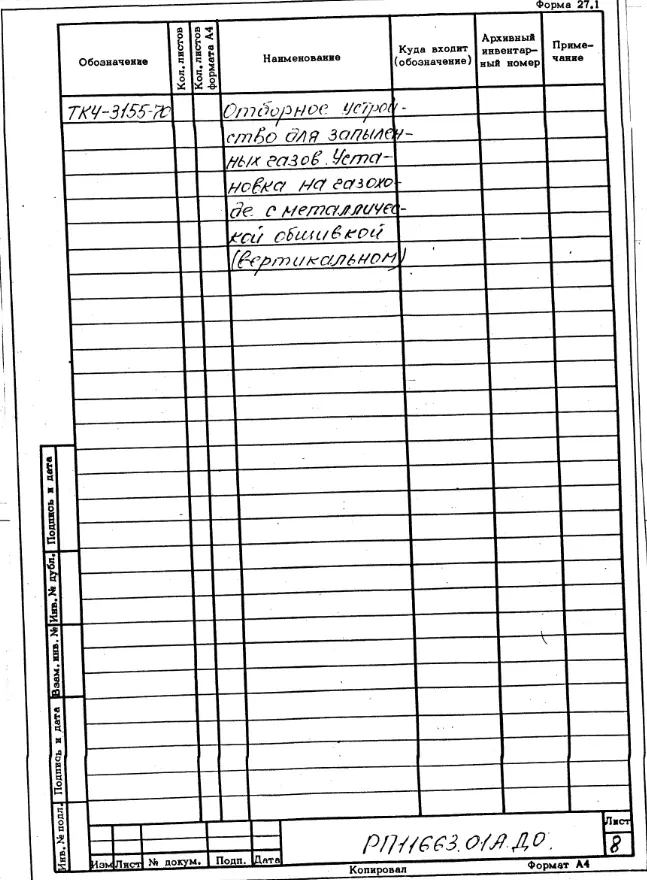 Форма 27.1
Обозначение
Кол. листов
Кол. листов формата А4
Наименование
Куда входит (обозначение)
Архивный инвентар-
ный номер
Приме-
чание
ТКЧ-3155-70
Отборное устрой-
ство для запылен-
ных газов. Уста-
новка на газохо-
де с металличес-
кой обшивкой
(вертикальном)
Подпись и дата
Инв. № дубл.
Взам. инв. №
Подпись и дата
Инв. № подл.
Изм Лист № докум. Подп. Дата
РП11663.01А.Д0.
Лист
8
Копировал
Формат А4